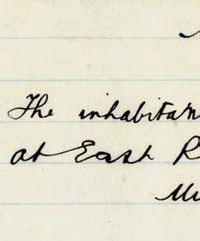 The inhabitan
at East R